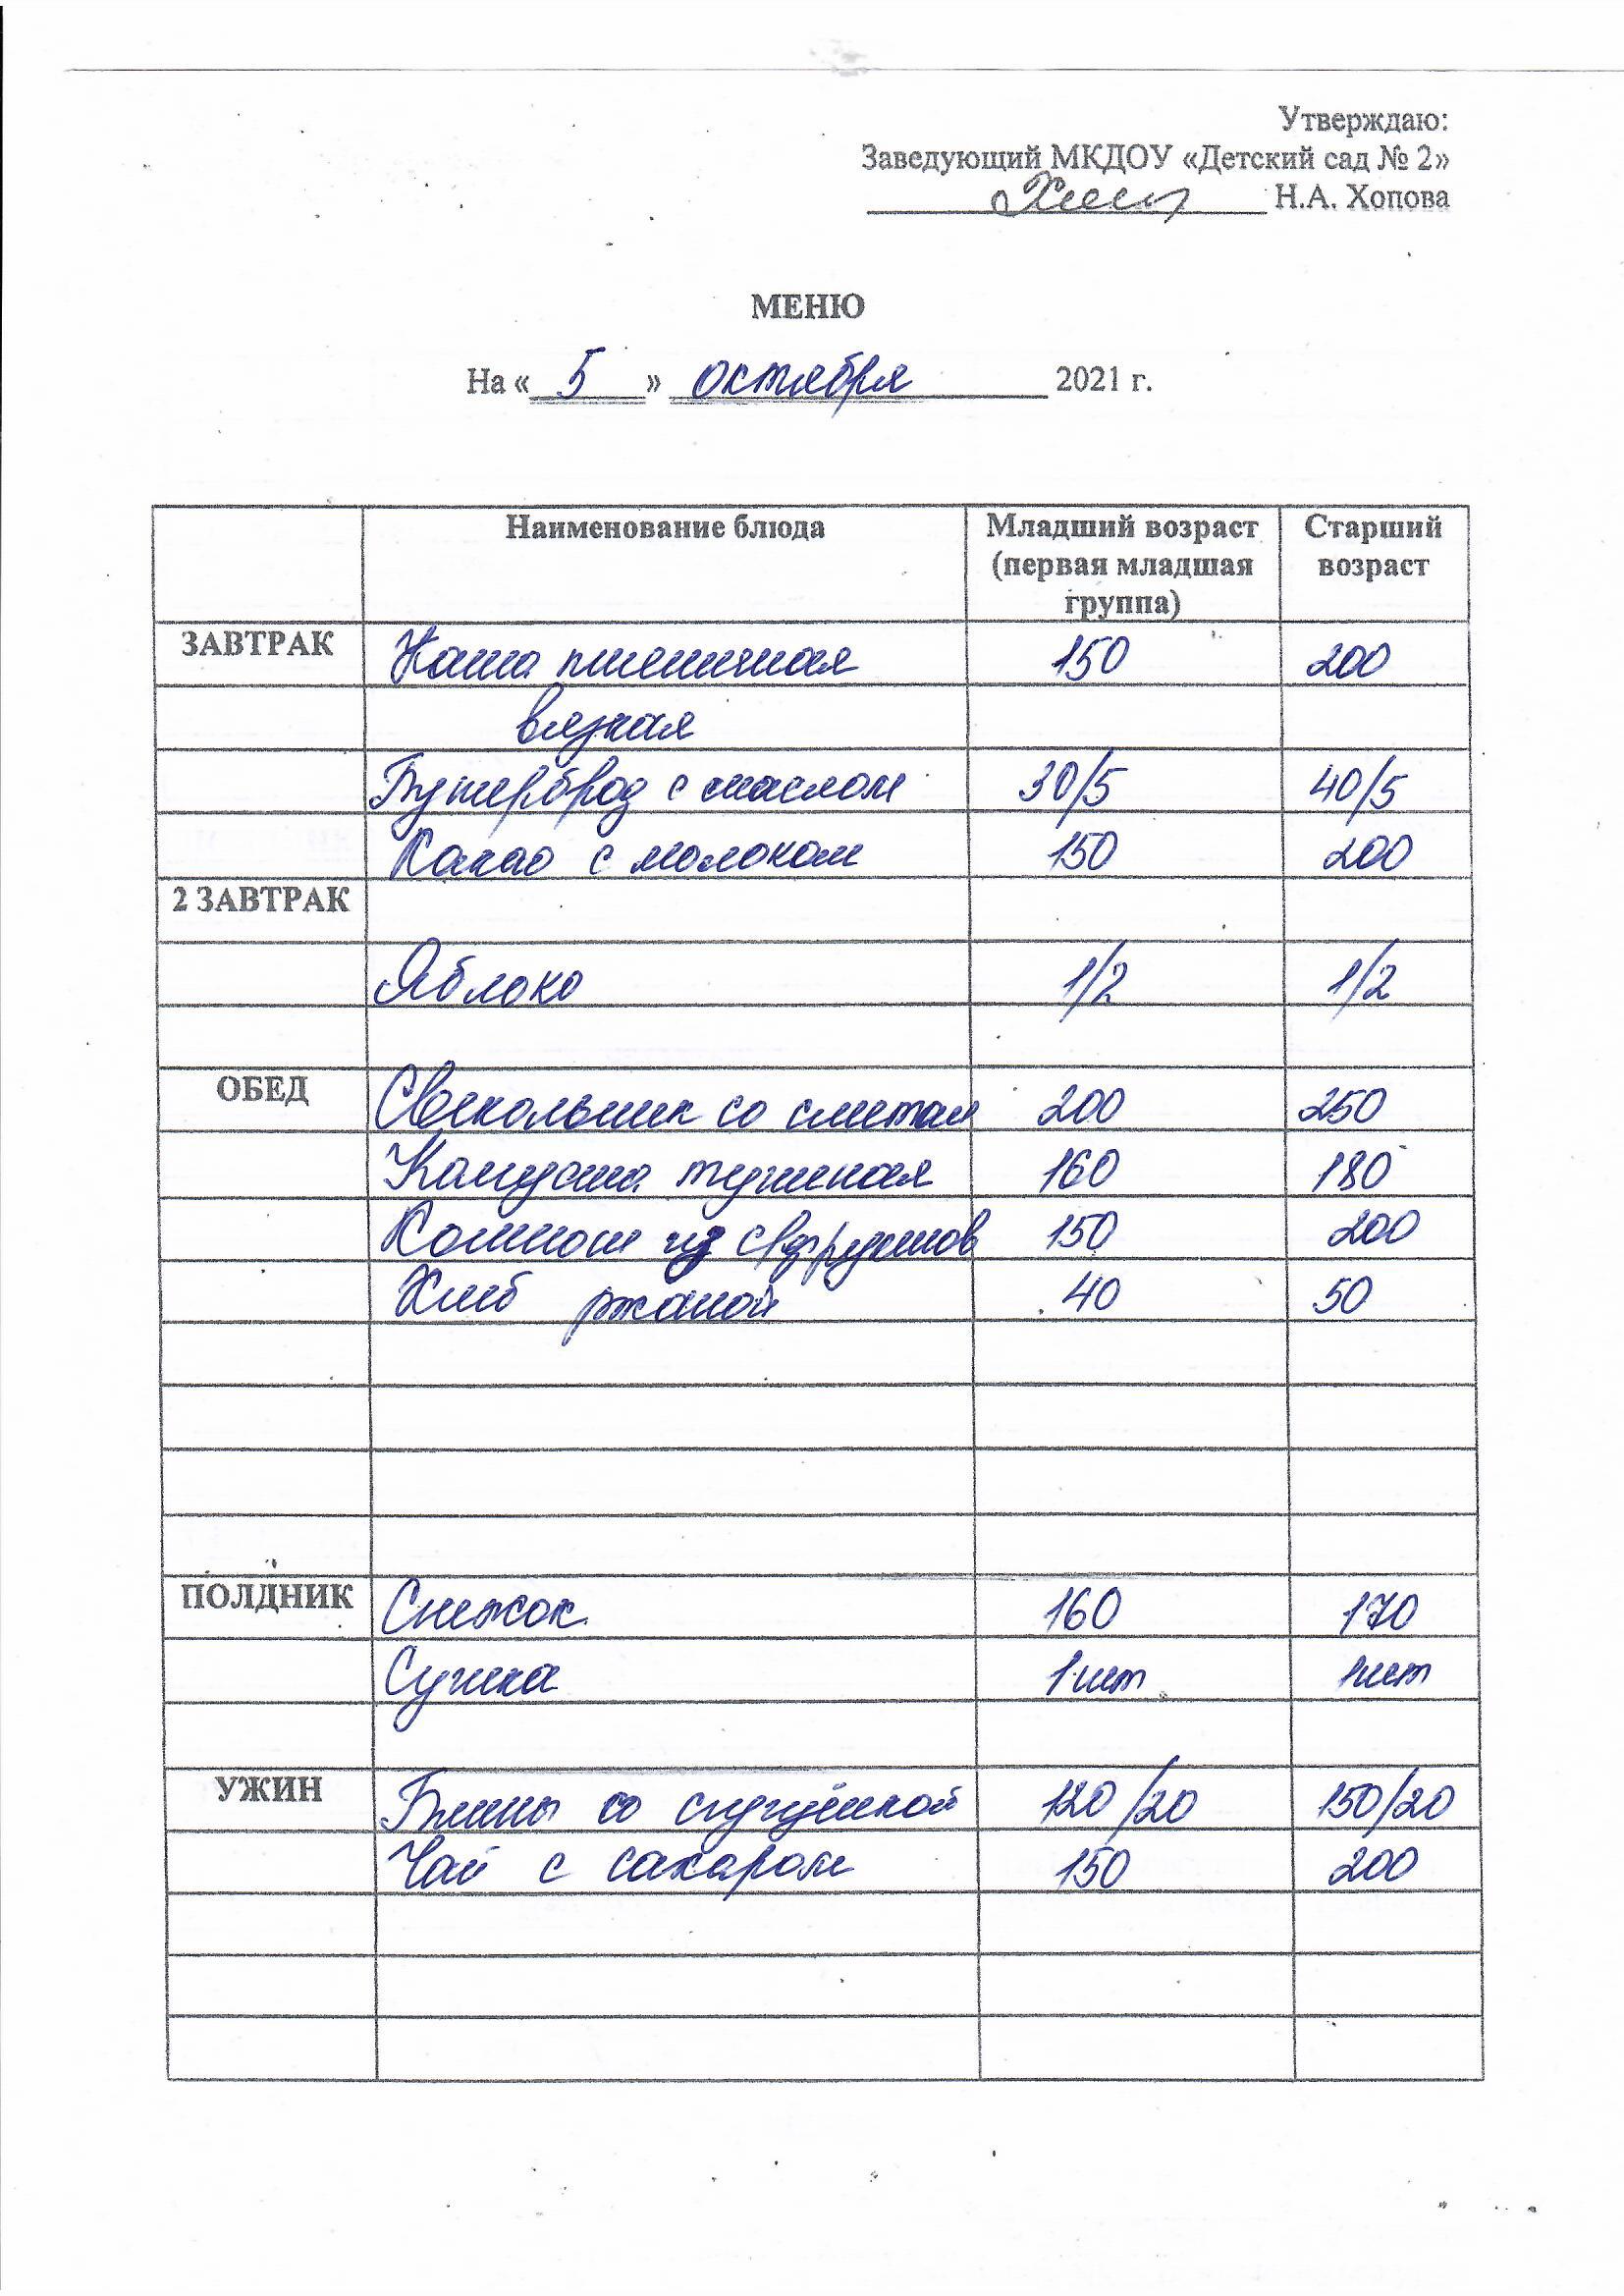 Утверждаю:
Заведующий МКДОУ «Детский сад № 2»
Н.А. Хопова
МЕНЮ
На « 5 » октября 2021 г.
Наименование блюда Младший возраст (первая младшая группа) Старший возраст
ЗАВТРАК Каша пшеничная 150 200
вязкая
Бутерброд с маслом 30/5 40/5
Какао с молоком 150 200
2 ЗАВТРАК
Яблоко 1/2 1/2
ОБЕД Свекольник со сметан 200 250
Капуста тушеная 160 180
Компот из св/фруктов 150 200
Хлеб ржаной 40 50
ПОЛДНИК Снежок 160 170
Сушка 1 шт 1 шт
УЖИН Блины со сгущёнкой 120/20 150/20
Чай с сахаром 150 200